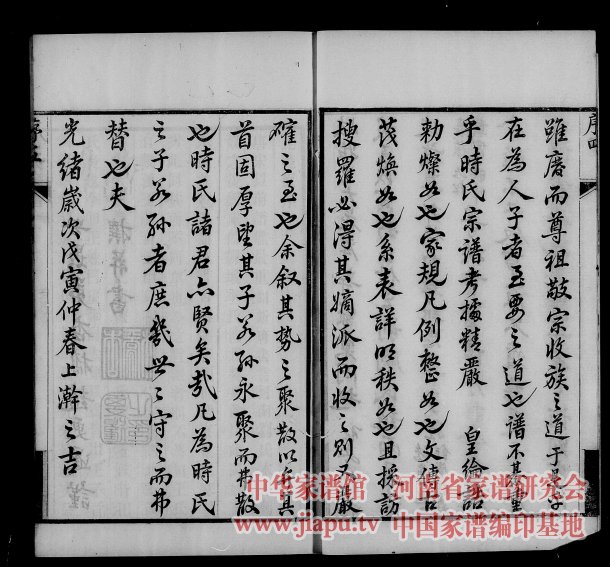 序四
雖磨而尊祖敬宗收族之道于是乎
在為人子者至要之道也譜不其重
乎時氏宗譜考據精嚴　皇綸誥
勅燦如也家規凡例整如也文傳古
茂煥如也系表詳明秩如也且採訪
搜羅必得其嫡派而收之則又嚴
確之至也余叙其勢之聚散以弁其
首固厚望其子若孫永聚而弗散
也時氏諸君亦賢矣哉凡為時氏
之子若孫者庶幾世之守之而弗
替也夫
光緒歲次戊寅仲春上澣之吉
序五
中华家谱馆　河南省家谱研究会
www.jiapu.tv　中国家谱编印基地